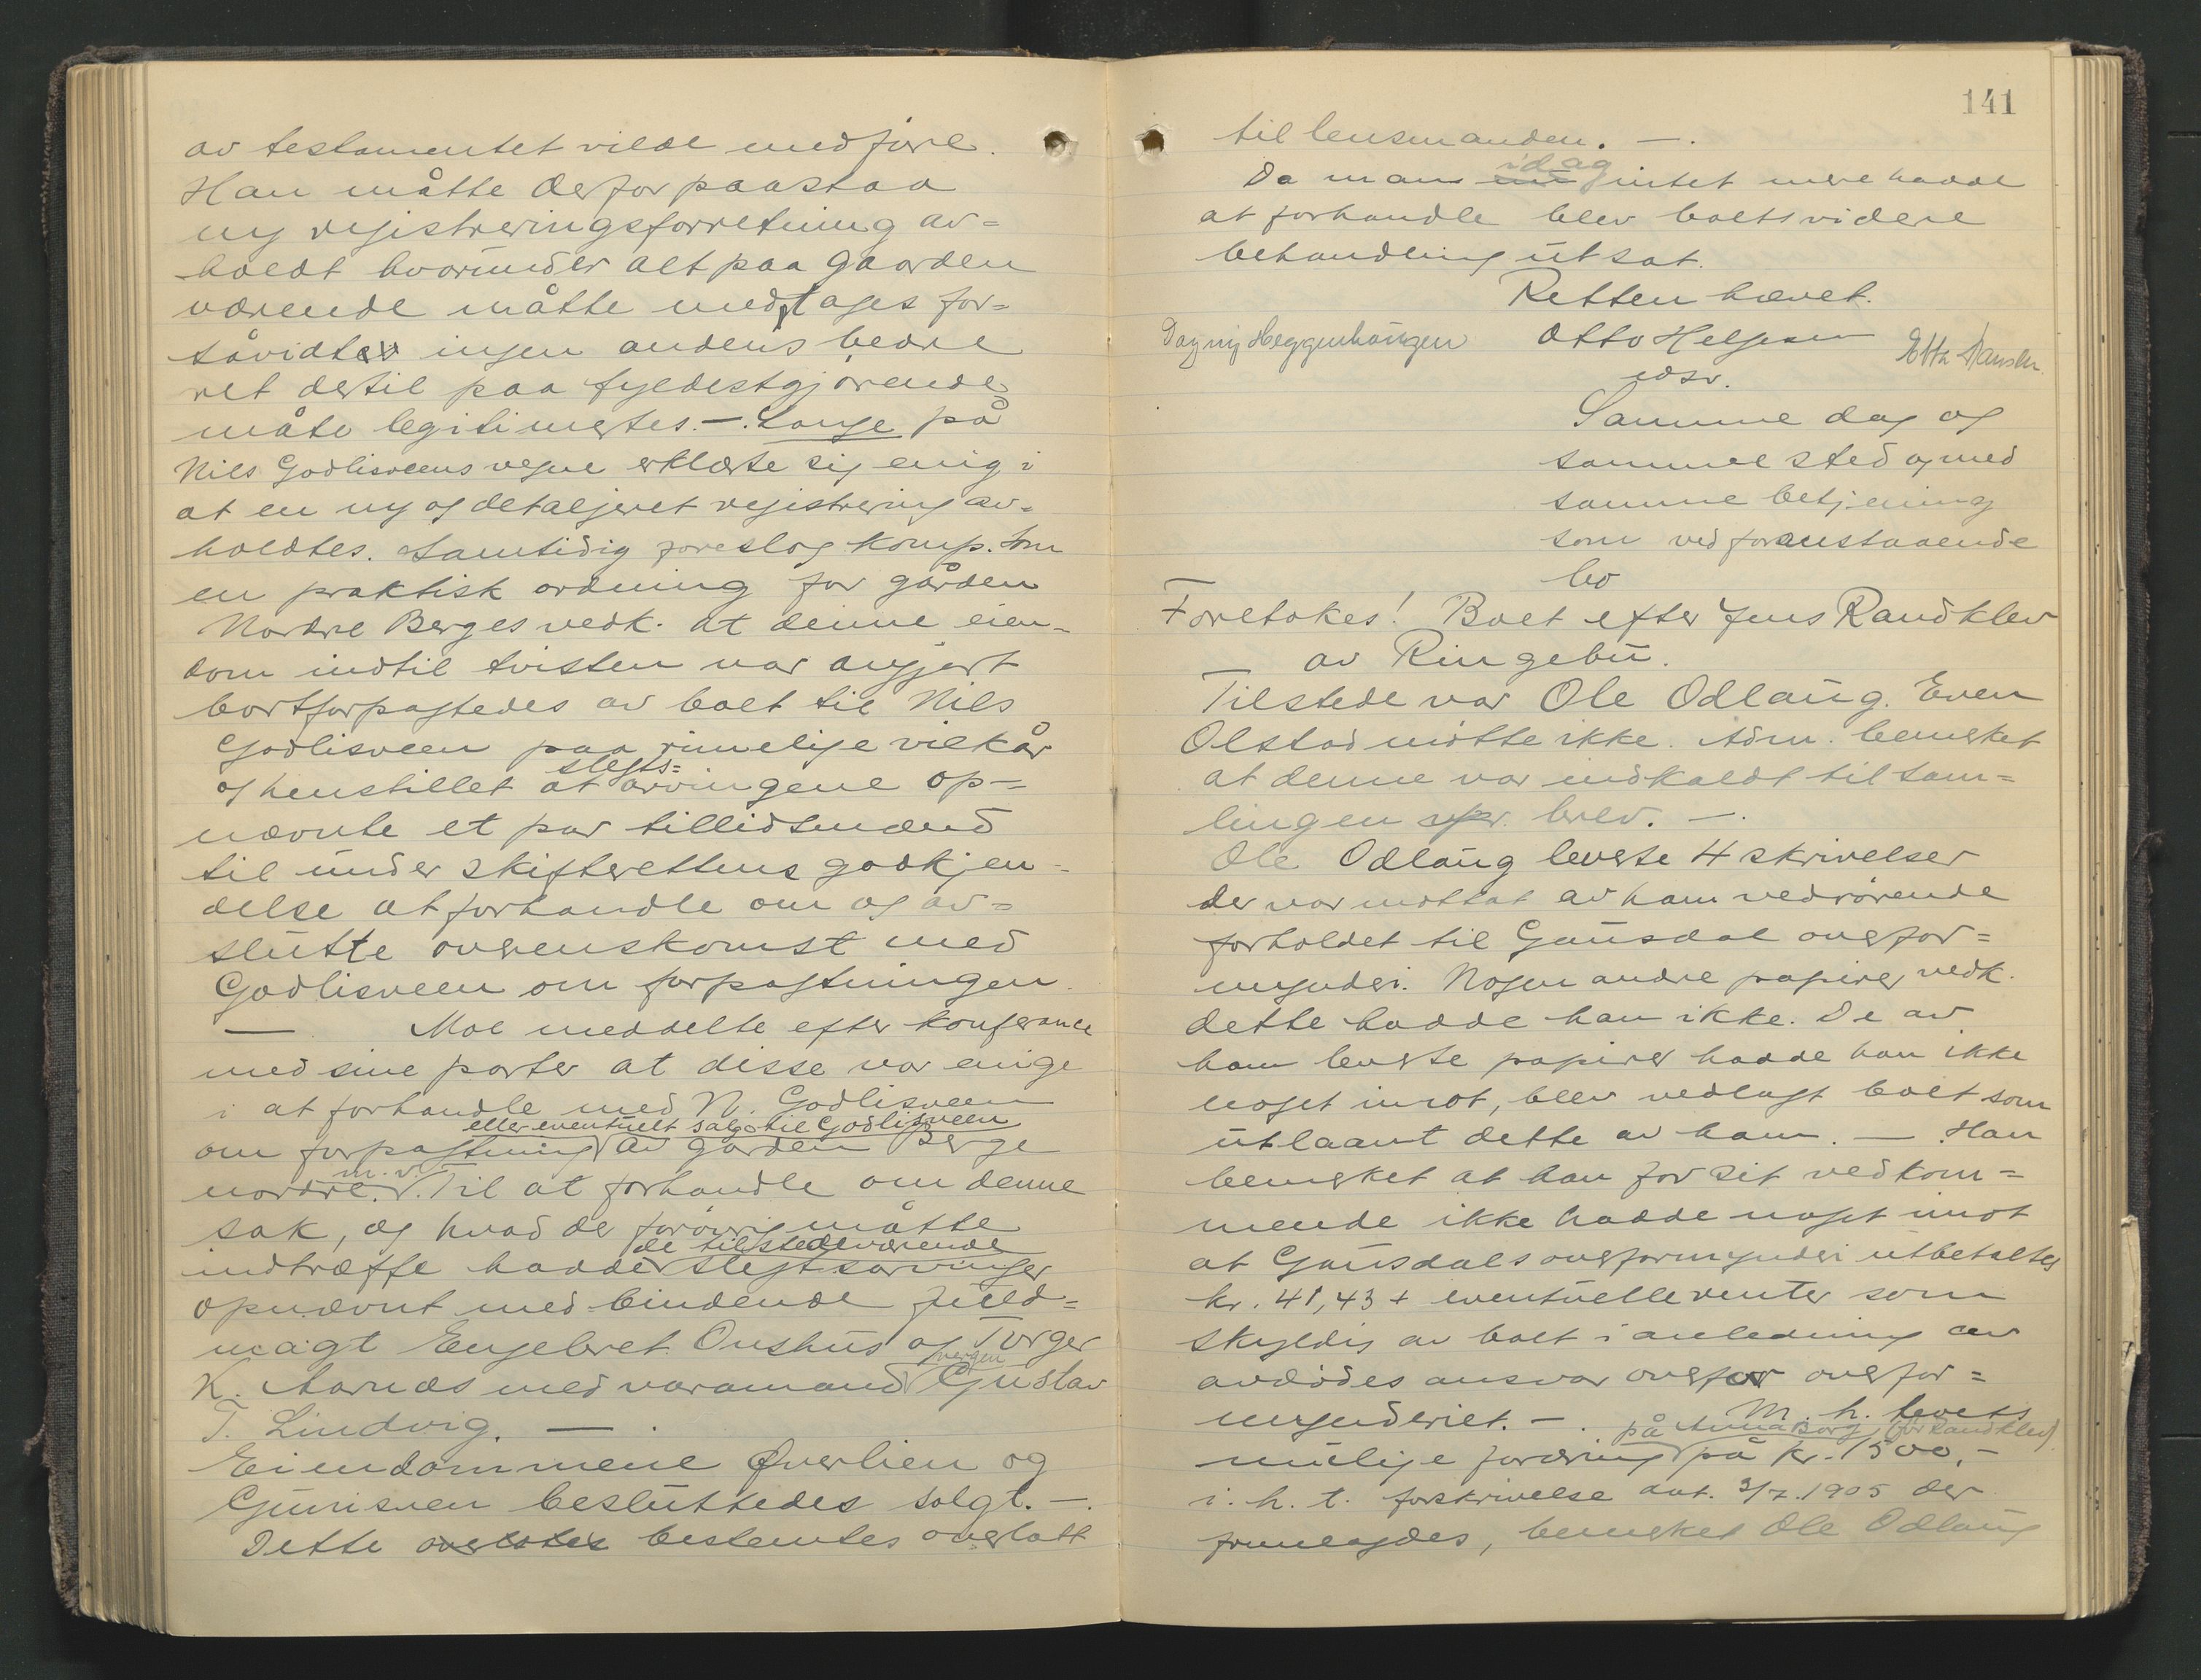 av testamentet vilde medføre.
Han måtte derfor paastaa
ny registreringsforretning av=
holdt hvorunder alt paa gaarden
værende måtte medtages for=
såvidt ingen andens bedre
ret dertil paa fyldestgjørende
måte legitimertes. —. Lange på
Nils Godlisveens vegne erklærte sig enig i
at en ny og detaljeret registrering av=
holdtes. Samtidig foreslog komp. som
en praktisk ordning for gården
Nordre Berges vedk. at denne eien=
dom indtil tvisten var avgjort
bortforpagtedes av boet til Nils
Godlisveen paa rimelige vilkår
slegts=
og henstillet at arvingene op=
nævnte et par tillidsmænd
til under skifterettens godkjen=
delse at forhandle om og av=
slutte overenskomst med
Godlisveen om forpagtningen.
— Moe meddelte efter konferance
med sine parter at disse var enige
i at forhandle med N. Godlisveen
eller eventuelt salg til Godlisveen
om forpagtning av gården Berge
m. v.
nordre. Til at forhandle om denne
sak, og hvad der forøvrig måtte
de tilstedeværende
indtræffe hadde slegtsarvinger
opnævnt med bindende fuld=
magt Engebret Onshus og Torger
vergen
K. Aarnes med varamand Gustav
T. Lindvig. — .
Eiendommene Øverlien og
Gurisveen besluttedes solgt. —.
Dette overlotes bestemtes overlatt
141
til lensmanden. —.
idag
Da man nu intet mere hadde
at forhandle blev boets videre
behandling utsat.
Retten hævet.
Dagny Heggenhaugen Otto Helgesen Etta Hansen
edsv.
Samme dag og
samme sted og med
samme betjening
som ved foranstaaende
bo
Foretokes! Boet efter Jens Randklev
av Ringebu.
Tilstede var Ole Odlaug. Even
Olstad møtte ikke. Adm. bemerket
at denne var indkaldt til sam=
lingen pr. brev. —.
Ole Odlaug leverte 4 skrivelser
der var mottat av ham vedrørende
forholdet til Gausdal overfor=
mynderi. Nogen andre papirer vedk.
dette hadde han ikke. De av
ham leverte papirer hadde han ikke
noget imot, blev vedlagt boet som
utlaant dette av ham. — Han
bemerket at han for sit vedkom=
mende ikke hadde noget imot
at Gausdals overformynderi utbetaltes
kr. 41,43 + eventuelle renter som
skyldig av boet i anledning av
avdødes ansvar overfor overfor=
mynderiet. —. M. h. t. boets
på Anna Borg (f. Randklev)
mulige fordring på kr. 1500,—
i. h. t. forskrivelse dat. 3/7.1905 der
fremlagdes, bemerket Ole Odlaug